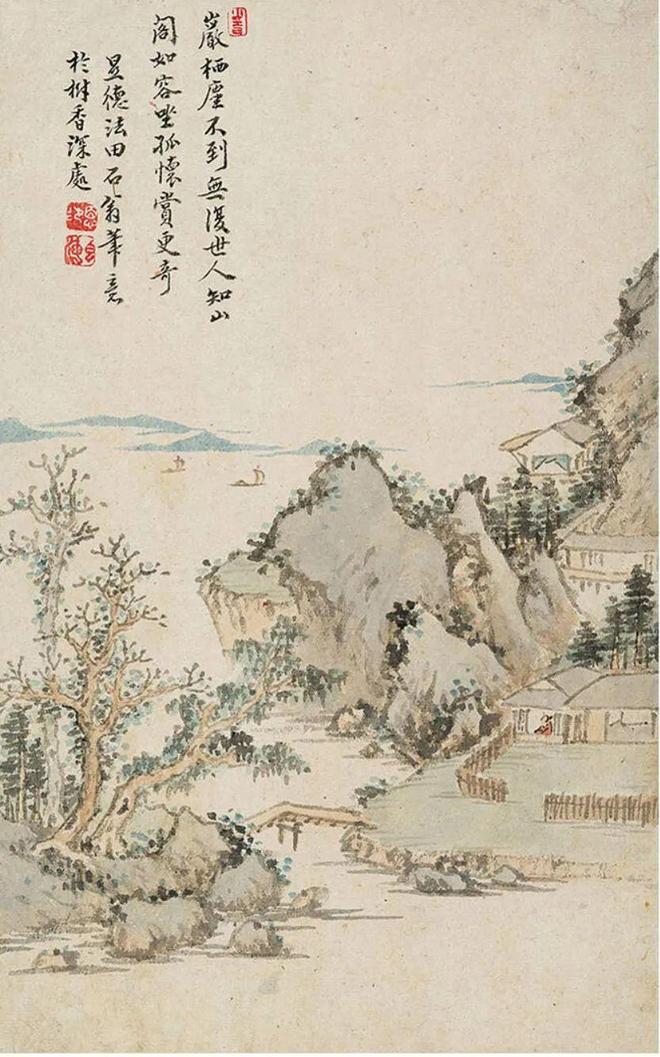 巖栖塵不到無復世人知山
閣如容坐孤懷賞更奇
昱德法田石翁筆意
於樹香深處